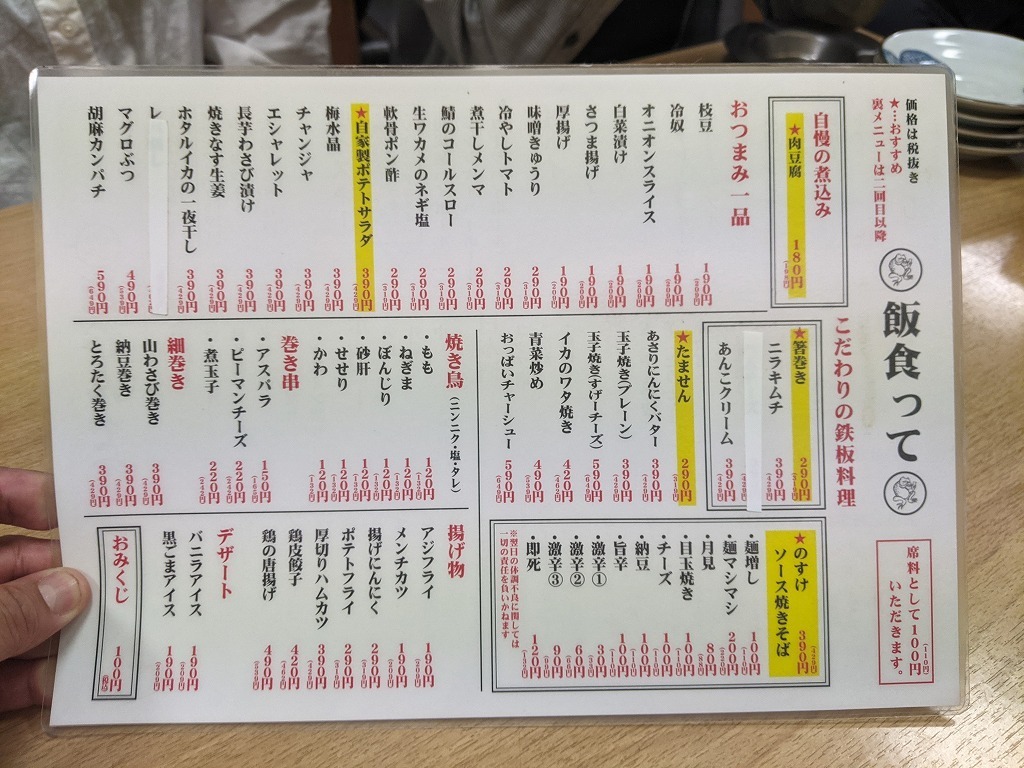 価格は税抜き
★…おすすめ
裏メニューは二回目以降
飯食って
席料として100円(110円)
いただきます。
自慢の煮込み
★肉豆腐 180円
おつまみ一品
枝豆 190円(209円)
冷奴 190円(209円)
オニオンスライス 190円(209円)
白菜漬け 190円(209円)
さつま揚げ 190円(209円)
厚揚げ 190円(209円)
味噌きゅうり 290円(319円)
冷やしトマト 290円(319円)
煮干しメンマ 290円(319円)
鯖のコールスロー 290円(319円)
生ワカメのネギ塩 290円(319円)
軟骨ポン酢 290円(319円)
★自家製ポテトサラダ 390円(429円)
梅水晶 390円(429円)
チャンジャ 390円(429円)
エシャレット 390円(429円)
長芋わさび漬け 390円(429円)
焼きなす生姜 390円(429円)
ホタルイカの一夜干し 390円(429円)
レ
マグロぶつ 490円(539円)
胡麻カンパチ 590円(649円)
こだわりの鉄板料理
★箸巻き 290円
ニラキムチ 390円
あんこクリーム 390円
★たません 290円(319円)
あさりにんにくバター 390円(429円)
玉子焼き(プレーン) 390円(429円)
玉子焼き(すげーチーズ) 590円(649円)
イカのワタ焼き 420円(462円)
青菜炒め 490円(539円)
おっぱいチャーシュー 590円(649円)
焼き鳥(ニンニク・塩・タレ)
・もも 120円(132円)
・ねぎま 120円(132円)
・ぼんじり 120円(132円)
・砂肝 120円(132円)
・せせり 120円(132円)
・かわ 120円(132円)
巻き串
・アスパラ 150円
・ピーマンチーズ 220円(242円)
・煮玉子 220円(242円)
細巻き
山わさび巻き 390円(429円)
納豆巻き 390円(429円)
とろたく巻き 390円(429円)
★のすけ
ソース焼きそば 390円(429円)
・麺増し 100円(110円)
・麺マシマシ 200円
・月見 80円
・目玉焼き 100円
・チーズ 100円
・納豆 100円
・旨辛 100円
・激辛① 30円
・激辛② 60円
・激辛③ 90円
・即死 120円(132円)
※翌日の体調不良に関しては
一切の責任を負いかねます
揚げ物
アジフライ 190円(209円)
メンチカツ 190円(209円)
揚げにんにく 290円(319円)
ポテトフライ 290円(319円)
厚切りハムカツ 390円
鶏皮餃子 420円(462円)
鶏の唐揚げ 490円
デザート
バニラアイス 190円(209円)
黒ごまアイス 190円(209円)
おみくじ 100円